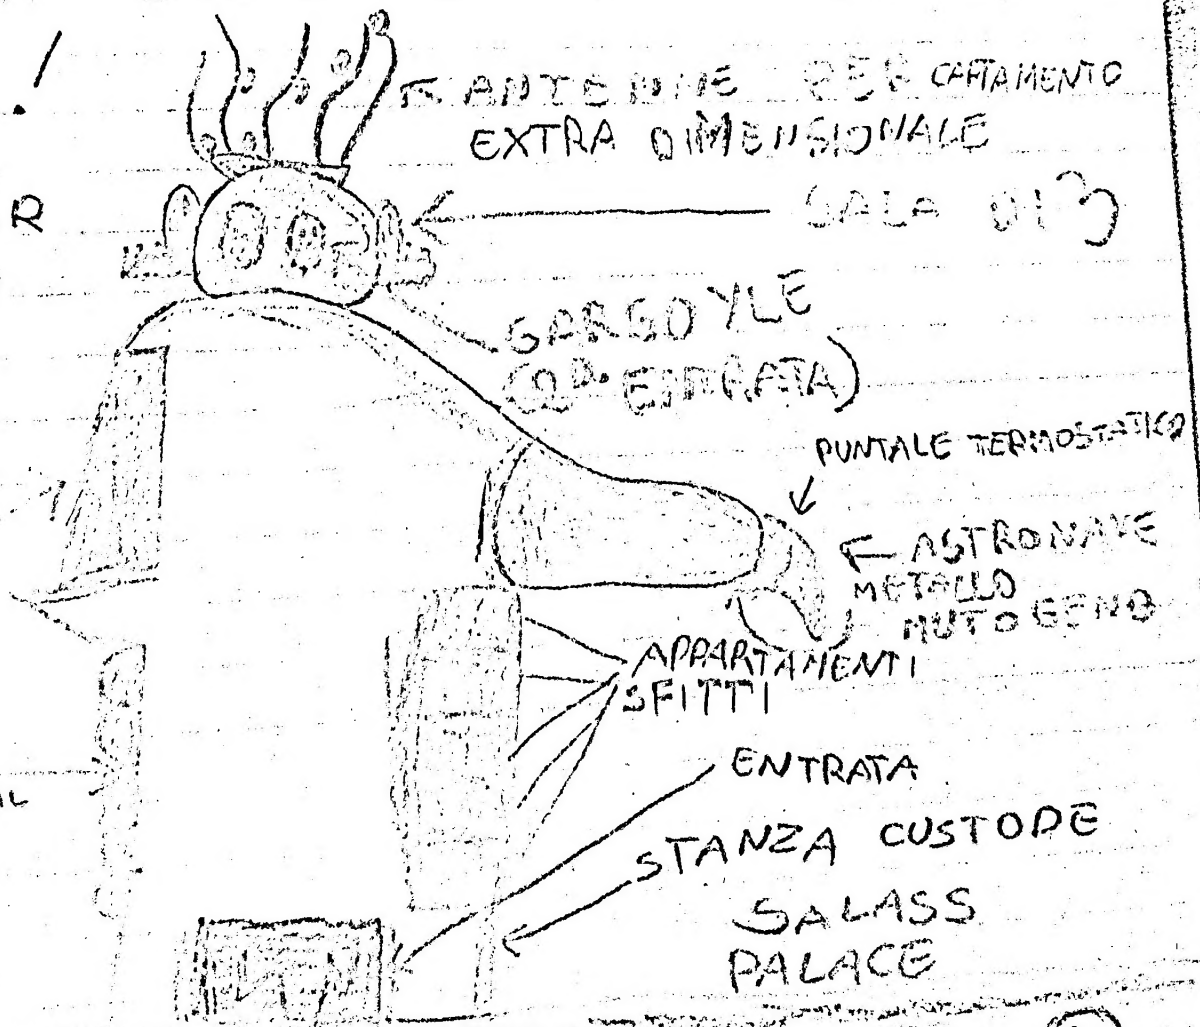 !
ANTENNE PER CAPTAMENTO
EXTRA DIMENSIONALE
R
SALA DI 3
GARGOYLE
(2ª ENTRATA)
PUNTALE TERMOSTATICO
ASTRONAVE
METALLO
MUTOGENO
APPARTAMENTI
SFITTI
ENTRATA
STANZA CUSTODE
SALASS
PALACE